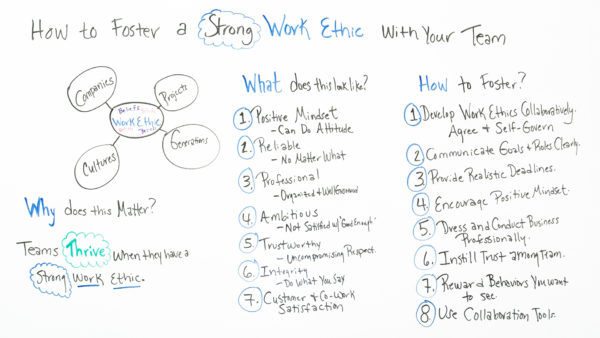 How to Foster a Strong Work Ethic With Your Team
Companies
Projects
Beliefs
Work Ethic
Cultures
Generations
Why does this Matter?
Teams Thrive When they have a
Strong Work Ethic.
What does this look like?
1 Positive Mindset
- Can Do Attitude
2. Reliable
- No Matter What
3. Professional
- Organized & Well Groomed
4. Ambitious
- Not Satisfied w/ "Good Enough"
5. Trustworthy
- Uncompromising Respect.
6. Integrity
- Do What You Say
7. Customer & Co-Work
Satisfaction
How to Foster?
1 Develop Work Ethics Collaboratively.
Agree & Self-Govern
2. Communicate Goals & Roles Clearly.
3. Provide Realistic Deadlines.
4. Encourage Positive Mindset.
5. Dress and Conduct Business
Professionally.
6. Instill Trust among Team.
7. Reward Behaviors You want
to see.
8. Use Collaboration Tools.